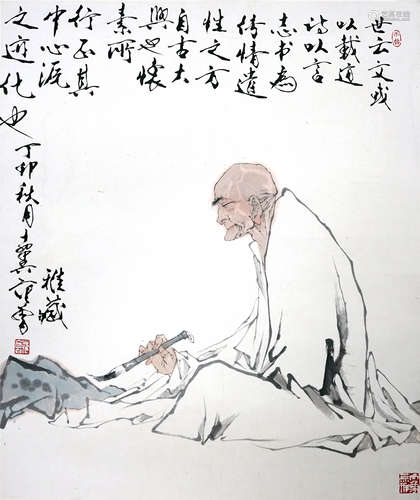 世云文或
以载道
诗以言
志书为
传情遣
性之方
自古大
兴也怀
素所
行正其
中心源
之迹化
也
丁卯秋月十翼范曾
雅藏